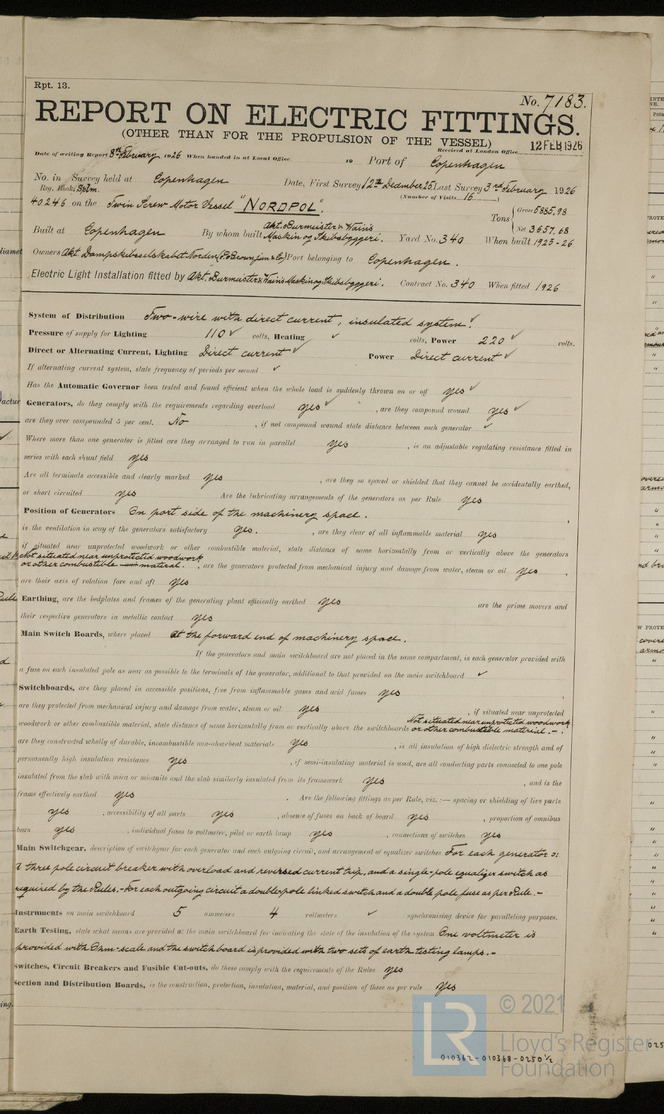 Rpt. 13.
No. 7183.
REPORT ON ELECTRIC FITTINGS.
(OTHER THAN FOR THE PROPULSION OF THE VESSEL)
Received at London Office 12 FEB 1926
Date of writing Report 8th February 1926 When handed in at Local Office 19 Port of Copenhagen
No. in Survey held at Copenhagen Date, First Survey 12th December 25 Last Survey 3rd February 1926
Reg. Book.
(Number of Visits 16)
40246 on the Twin Screw Motor Vessel "NORDPOL". Tons { Gross 5885,98
Net 3657,68
Built at Copenhagen By whom built Akt. Burmeister & Wains Maskin og Skibsbyggeri. Yard No. 340 When built 1925-26
Owners Akt Dampskibsselskabet Norden Port belonging to Copenhagen.
Electric Light Installation fitted by Akt. Burmeister & Wains Maskin og Skibsbyggeri. Contract No. 340 When fitted 1926
System of Distribution Two-wire with direct current, insulated system. ✓
Pressure of supply for Lighting 110 ✓ volts, Heating ✓ volts, Power 220 ✓ volts.
Direct or Alternating Current, Lighting Direct current ✓ Power Direct current ✓
If alternating current system, state frequency of periods per second ✓
Has the Automatic Governor been tested and found efficient when the whole load is suddenly thrown on or off yes ✓
Generators, do they comply with the requirements regarding overload yes ✓, are they compound wound yes ✓
are they over compounded 5 per cent. No, if not compound wound state distance between each generator ✓
Where more than one generator is fitted are they arranged to run in parallel yes, is an adjustable regulating resistance fitted in
series with each shunt field yes
Are all terminals accessible and clearly marked yes, are they so spaced or shielded that they cannot be accidentally earthed,
or short circuited yes Are the lubricating arrangements of the generators as per Rule yes
Position of Generators On port side of the machinery space.
is the ventilation in way of the generators satisfactory yes., are they clear of all inflammable material yes
if situated near unprotected woodwork or other combustible material, state distance of same horizontally from or vertically above the generators
Not situated near unprotected woodwork
or other combustible material., are the generators protected from mechanical injury and damage from water, steam or oil yes,
are their axis of rotation fore and aft yes
Earthing, are the bedplates and frames of the generating plant efficiently earthed yes are the prime movers and
their respective generators in metallic contact yes
Main Switch Boards, where placed At the forward end of machinery space.
If the generators and main switchboard are not placed in the same compartment, is each generator provided with
a fuse on each insulated pole as near as possible to the terminals of the generator, additional to that provided on the main switchboard ✓
Switchboards, are they placed in accessible positions, free from inflammable gases and acid fumes yes,
are they protected from mechanical injury and damage from water, steam or oil yes, if situated near unprotected
woodwork or other combustible material, state distance of same horizontally from or vertically above the switchboards Not situated near unprotected woodwork or other combustible material.-.
are they constructed wholly of durable, incombustible non-absorbent materials yes, is all insulation of high dielectric strength and of
permanently high insulation resistance yes, if semi-insulating material is used, are all conducting parts connected to one pole
insulated from the slab with mica or micanite and the slab similarly insulated from its framework yes, and is the
frame effectively earthed yes. Are the following fittings as per Rule, viz.:— spacing or shielding of live parts
yes, accessibility of all parts yes, absence of fuses on back of board yes, proportion of omnibus
bars yes, individual fuses to voltmeter, pilot or earth lamp yes, connections of switches yes
Main Switchgear, description of switchgear for each generator and each outgoing circuit, and arrangement of equalizer switches For each generator:
A three pole circuit breaker with overload and reversed current trip, and a single-pole equalizer switch as
required by the Rules.- For each outgoing circuit a double pole linked switch and a double pole fuse as per Rule.-
Instruments on main switchboard 5 ammeters 4 voltmeters ✓ synchronising device for paralleling purposes.
Earth Testing, state what means are provided at the main switchboard for indicating the state of the insulation of the system One voltmeter is
provided with Ohm-scale and the switchboard is provided with two sets of earth testing lamps.-
Switches, Circuit Breakers and Fusible Cut-outs, do these comply with the requirements of the Rules yes
Section and Distribution Boards, is the construction, protection, insulation, material, and position of these as per rule yes
© 2021
LR
Lloyd's Register
Foundation
010362-010368-0250½